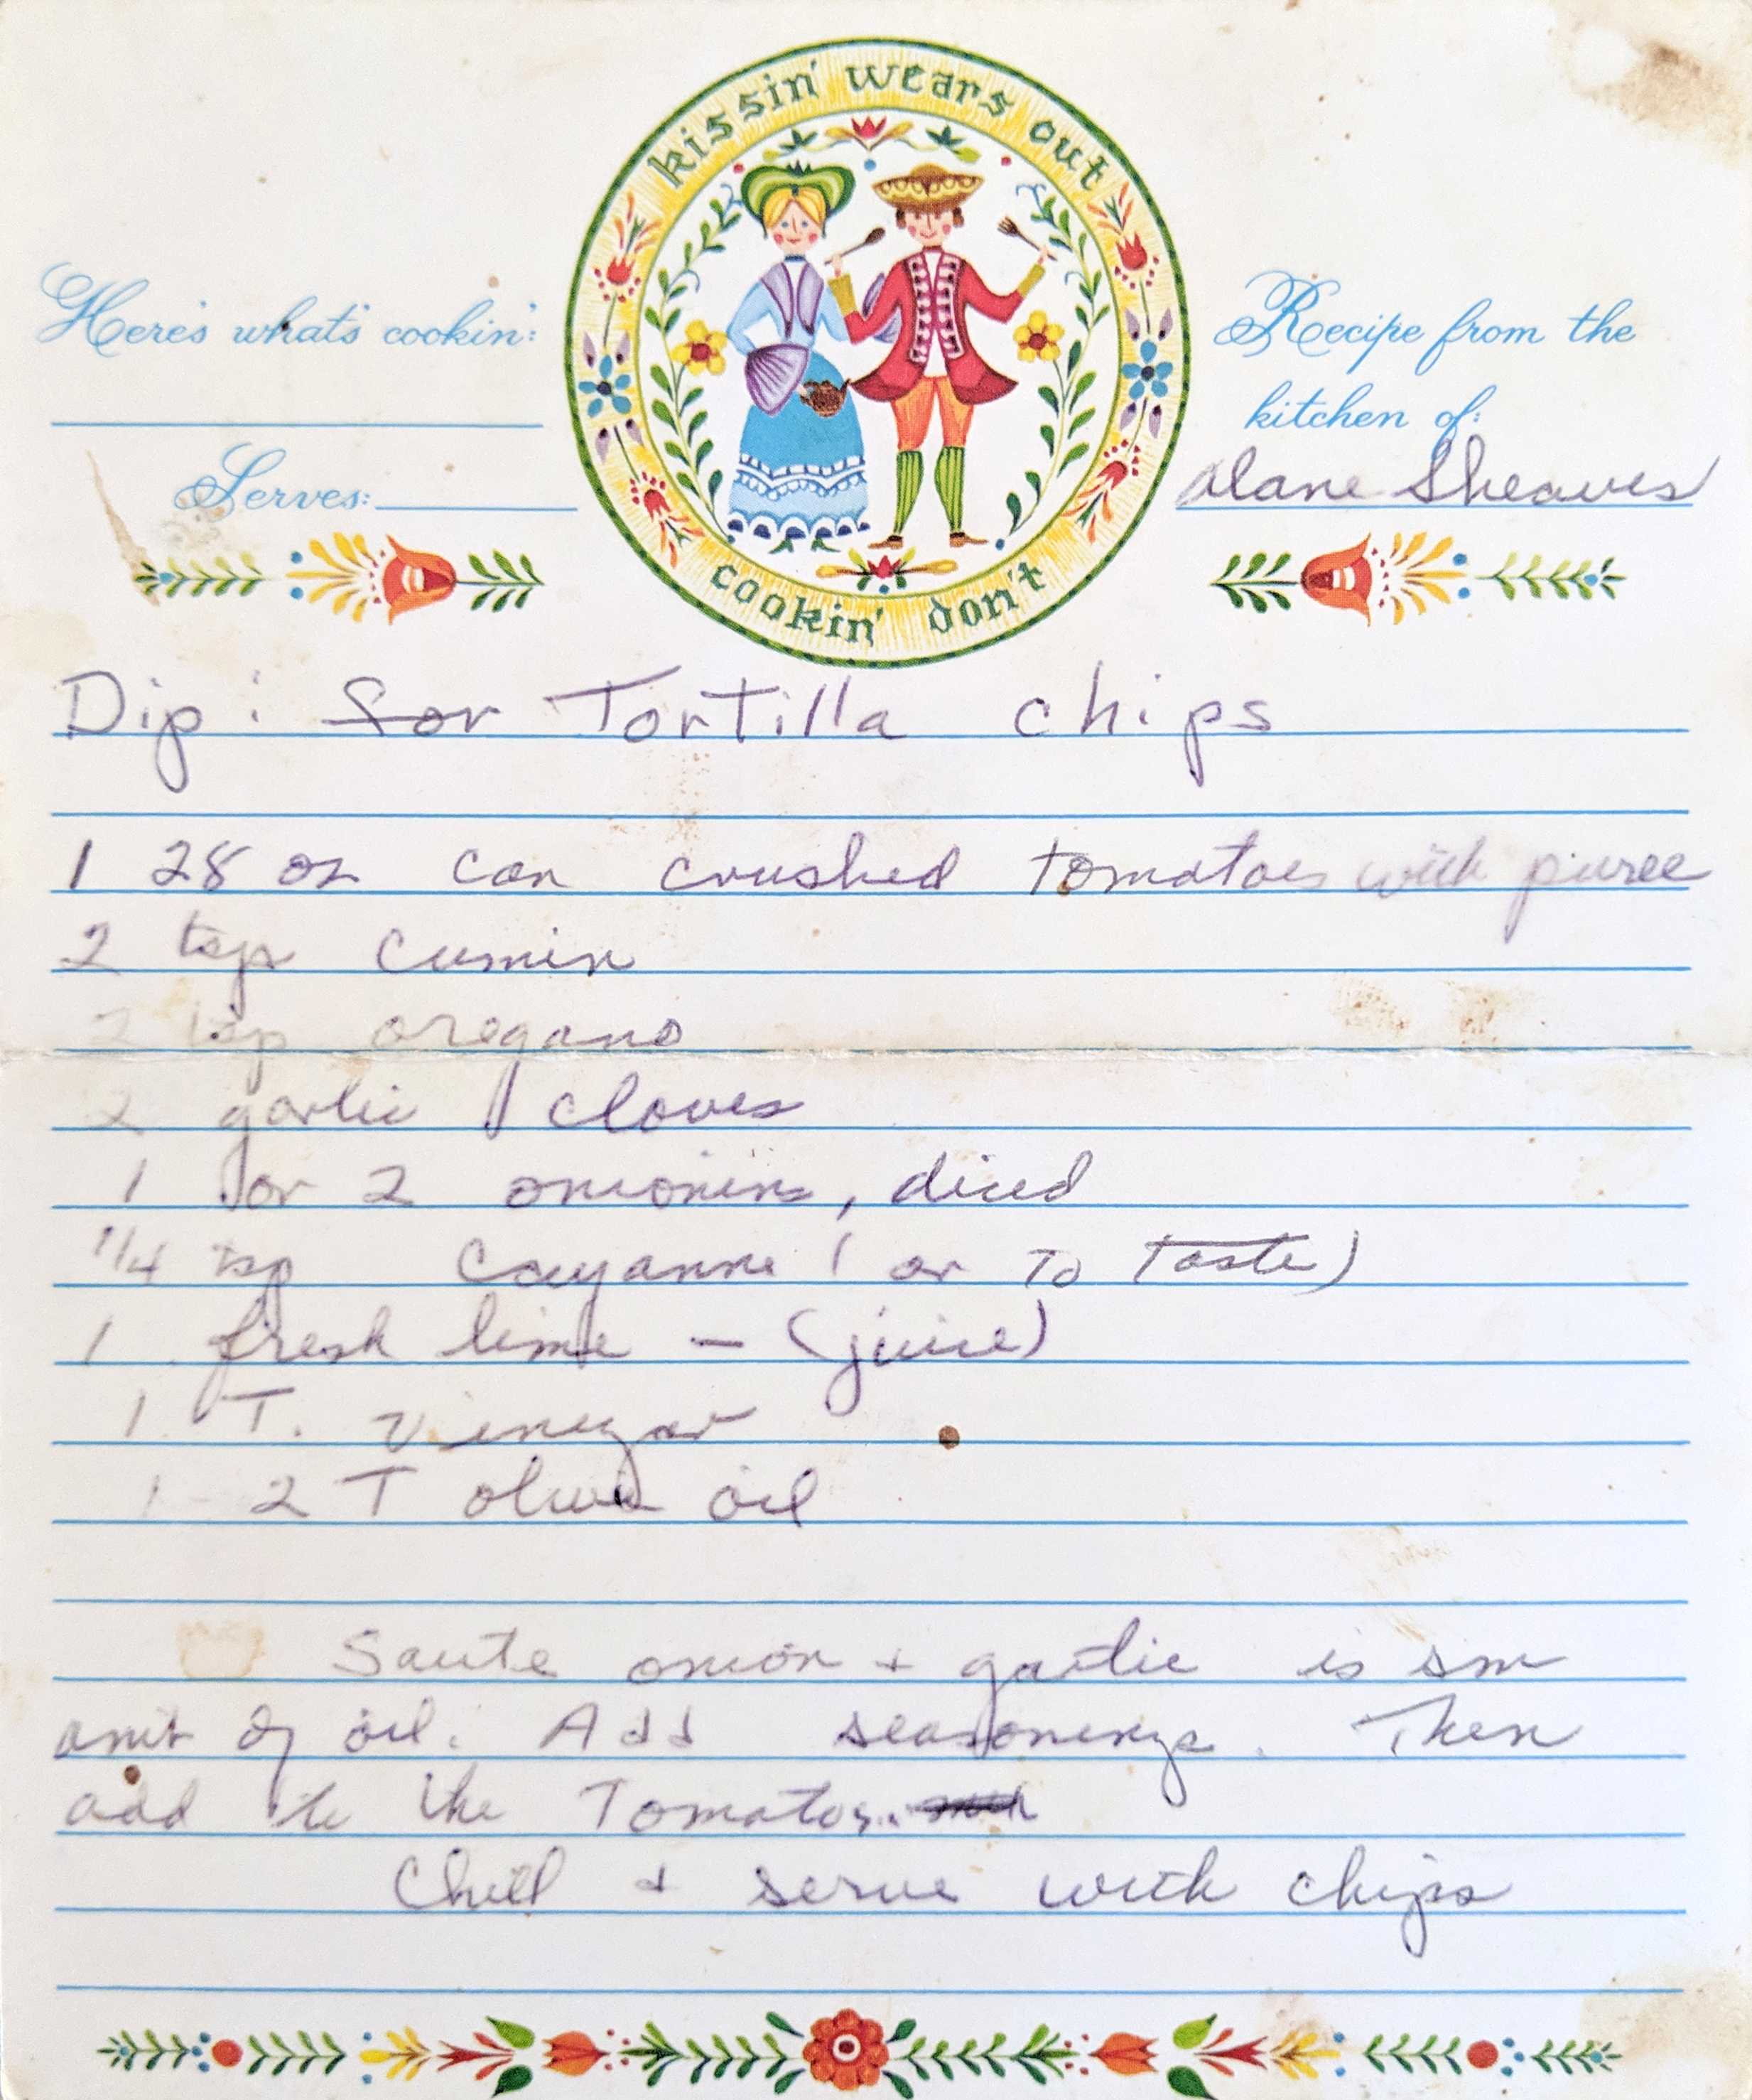 kissin' wears out
cookin' don't
Here's what's cookin':
Serves:
Recipe from the
kitchen of:
Alane Sheaves
Dip: for Tortilla chips
1 28 oz can crushed tomatoes with puree
2 tsp cumin
2 tsp oregano
2 garlic cloves
1 or 2 onionins, diced
1/4 tsp Cayanne (or to taste)
1 fresh lime - (juice)
1 T. vinegar
1-2 T olive oil
Saute onion + garlic is sm
amt of oil. Add seasonings. Then
add to the Tomatos.
Chill & serve with chips